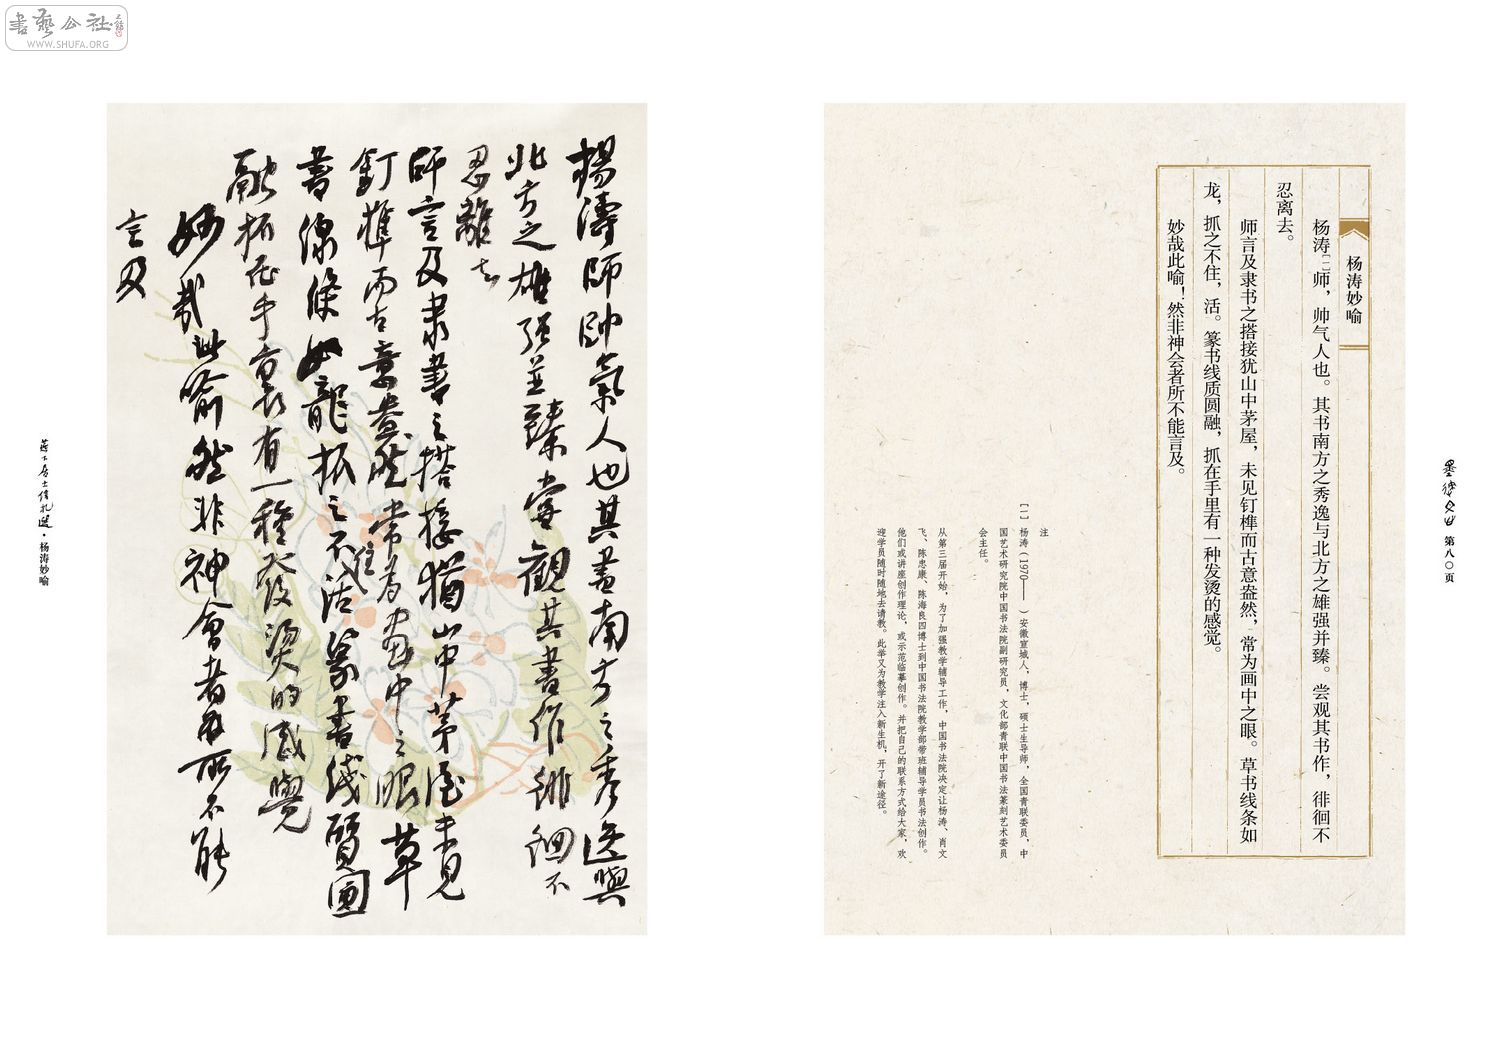 書藝公社
WWW.SHUFA.ORG
第八〇页
杨涛妙喻
杨涛[一]师，帅气人也。其书南方之秀逸与北方之雄强并臻。尝观其书作，徘徊不
忍离去。
师言及隶书之搭接犹山中茅屋，未见钉榫而古意盎然，常为画中之眼。草书线条如
龙，抓之不住，活。篆书线质圆融，抓在手里有一种发烫的感觉。
妙哉此喻！然非神会者所不能言及。
注
[一] 杨涛（1970—— ）安徽宣城人，博士，硕士生导师，全国青联委员，中
国艺术研究院中国书法院副研究员，文化部青联中国书法篆刻艺术委员
会主任。
从第三届开始，为了加强教学辅导工作，中国书法院决定让杨涛、肖文
飞、陈忠康、陈海良四博士到中国书法院教学部带班辅导学员书法创作。
他们或讲座创作理论，或示范临摹创作。并把自己的联系方式给大家，欢
迎学员随时随地去请教。此举又为教学注入新生机，开了新途径。
楊濤師帥氣人也其書南方之秀逸與
北方之雄强並臻嘗觀其書作徘徊不
忍離去
師言及隶書之搭接猶山中茅屋未見
釘榫而古意盎然常為畫中之眼草
書線條如龍抓之不住活篆書线質圓
融抓在手裏有一種发燙的感覺
妙哉此喻然非神會者所不能
言及
居士信札選·杨涛妙喻